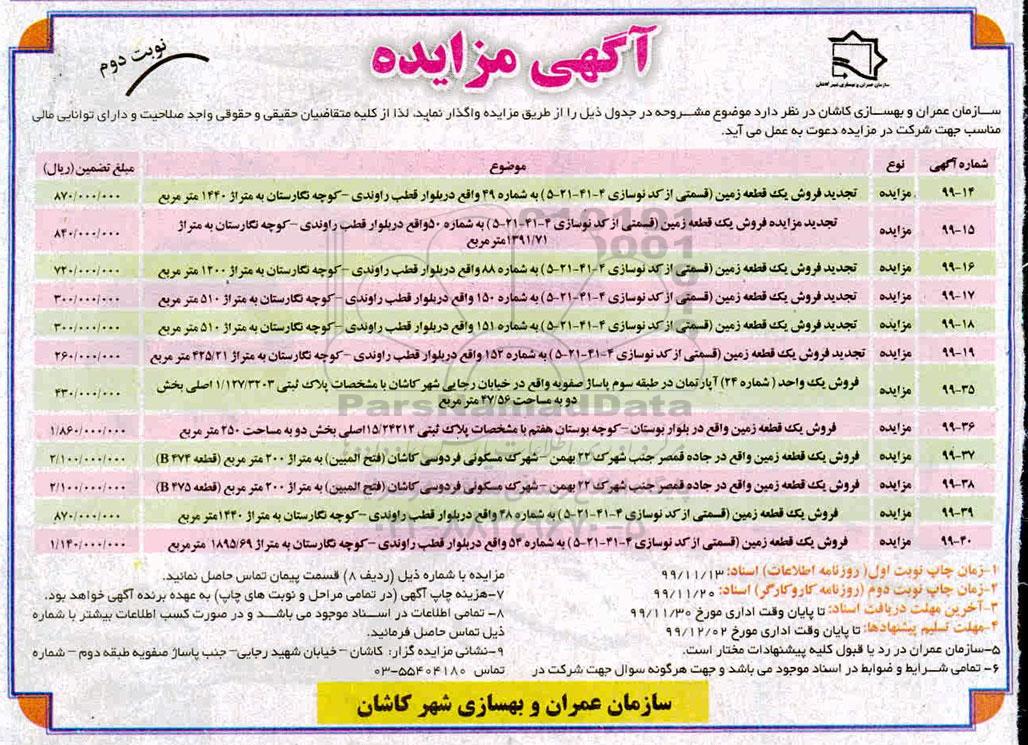 آگهی مزایده
نوبت دوم
سازمان عمران و بهسازی شهر کاشان
سـازمان عمران و بهسـازی کاشان در نظر دارد موضوع مشـروحه در جدول ذیل را از طریق مزایده واگذار نماید، لذا از کلیه متقاضیان حقیقی و حقوقی واجد صلاحیت و دارای توانایی مالی
مناسب جهت شرکت در مزایده دعوت به عمل می آید.
شماره آگهی نوع موضوع مبلغ تضمین (ریال)
۹۹-۱۴ مزایده تجدید فروش یک قطعه زمین (قسمتی از کد نوسازی ۴-۴۱-۲۱-۵) به شماره ۴۹ واقع دربلوار قطب راوندی -کوچه نگارستان به متراژ ۱۴۴۰ متر مربع ۸۷۰/۰۰۰/۰۰۰
تجدید مزایده فروش یک قطعه زمین (قسمتی از کد نوسازی ۴-۴۱-۲۱-۵) به شماره ۵۰واقع دربلوار قطب راوندی -کوچه نگارستان به متراژ
۹۹-۱۵ مزایده ۱۳۹۱/۷۱متر مربع ۸۴۰/۰۰۰/۰۰۰
۹۹-۱۶ مزایده تجدید فروش یک قطعه زمین (قسمتی از کد نوسازی ۴-۴۱-۲۱-۵) به شماره ۸۸ واقع دربلوار قطب راوندی -کوچه نگارستان به متراژ ۱۲۰۰ متر مربع ۷۲۰/۰۰۰/۰۰۰
۹۹-۱۷ مزایده تجدید فروش یک قطعه زمین (قسمتی از کد نوسازی ۴-۴۱-۲۱-۵) به شماره ۱۵۰ واقع دربلوار قطب راوندی -کوچه نگارستان به متراژ ۵۱۰ متر مربع ۳۰۰/۰۰۰/۰۰۰
۹۹-۱۸ مزایده تجدید فروش یک قطعه زمین (قسمتی از کد نوسازی ۴-۴۱-۲۱-۵) به شماره ۱۵۱ واقع دربلوار قطب راوندی -کوچه نگارستان به متراژ ۵۱۰ متر مربع ۳۰۰/۰۰۰/۰۰۰
۹۹-۱۹ مزایده تجدید فروش یک قطعه زمین (قسمتی از کد نوسازی ۴-۴۱-۲۱-۵) به شماره ۱۵۲ واقع دربلوار قطب راوندی -کوچه نگارستان به متراژ ۴۲۵/۲۱ متر مربع ۲۶۰/۰۰۰/۰۰۰
فروش یک واحد ( شماره ۲۴) آپارتمان در طبقه سوم پاساژ صفویه واقع در خیابان رجایی شهر کاشان با مشخصات پلاک ثبتی ۱/۱۲۷/۳۲۰۳ اصلی بخش
۹۹-۳۵ مزایده دو به مساحت ۴۷/۵۶ متر مربع ۴۳۰/۰۰۰/۰۰۰
ParsNamadData
۹۹-۳۶ مزایده فروش یک قطعه زمین واقع در بلوار بوستان -کوچه بوستان هفتم با مشخصات پلاک ثبتی ۱۵/۲۴۲۱۴اصلی بخش دو به مساحت ۲۵۰ متر مربع ۱/۸۶۰/۰۰۰/۰۰۰
۹۹-۳۷ مزایده فروش یک قطعه زمین واقع در جاده قمصر جنب شهرک ۲۲ بهمن -شهرک مسکونی فردوسی کاشان (فتح المبین) به متراژ ۲۰۰ متر مربع (قطعه B ۴۷۴) ۲/۱۰۰/۰۰۰/۰۰۰
۹۹-۳۸ مزایده فروش یک قطعه زمین واقع در جاده قمصر جنب شهرک ۲۲ بهمن -شهرک مسکونی فردوسی کاشان (فتح المبین) به متراژ ۲۰۰ متر مربع (قطعه B ۴۷۵) ۲/۱۰۰/۰۰۰/۰۰۰
۹۹-۳۹ مزایده فروش یک قطعه زمین (قسمتی از کد نوسازی ۴-۴۱-۲۱-۵) به شماره ۴۸ واقع دربلوار قطب راوندی -کوچه نگارستان به متراژ ۱۴۴۰متر مربع ۸۷۰/۰۰۰/۰۰۰
۹۹-۴۰ مزایده فروش یک قطعه زمین (قسمتی از کد نوسازی ۴-۴۱-۲۱-۵) به شماره ۵۴ واقع دربلوار قطب راوندی -کوچه نگارستان به متراژ ۱۸۹۵/۶۹ مترمربع ۱/۱۴۰/۰۰۰/۰۰۰
۱-زمان چاپ نوبت اول( روزنامه اطلاعات) اسناد: ۹۹/۱۱/۱۳
۲-زمان چاپ نوبت دوم (روزنامه کاروکارگر) اسناد: ۹۹/۱۱/۲۰
۳-آخرین مهلت دریافت اسناد: تا پایان وقت اداری مورخ ۹۹/۱۱/۳۰
۴-مهلت تسلیم پیشنهادها: تا پایان وقت اداری مورخ ۹۹/۱۲/۰۲
۵-سازمان عمران در رد یا قبول کلیه پیشنهادات مختار است.
۶- تمامی شـرایط و ضوابط در اسناد موجود می باشد و جهت هرگونه سوال جهت شرکت در
مزایده با شماره ذیل (ردیف ۸) قسمت پیمان تماس حاصل نمائید.
۷-هزینه چاپ آگهی (در تمامی مراحل و نوبت های چاپ) به عهده برنده آگهی خواهد بود.
۸- تمامی اطلاعات در اسـناد موجود می باشـد و در صورت کسب اطلاعات بیشتر با شماره
ذیل تماس حاصل فرمائید.
۹-نشانی مزایده گزار: کاشان -خیابان شهید رجایی- جنب پاساژ صفویه طبقه دوم - شماره
تماس ۵۵۴۰۴۱۸۰-۰۳
سازمان عمران و بهسازی شهر کاشان